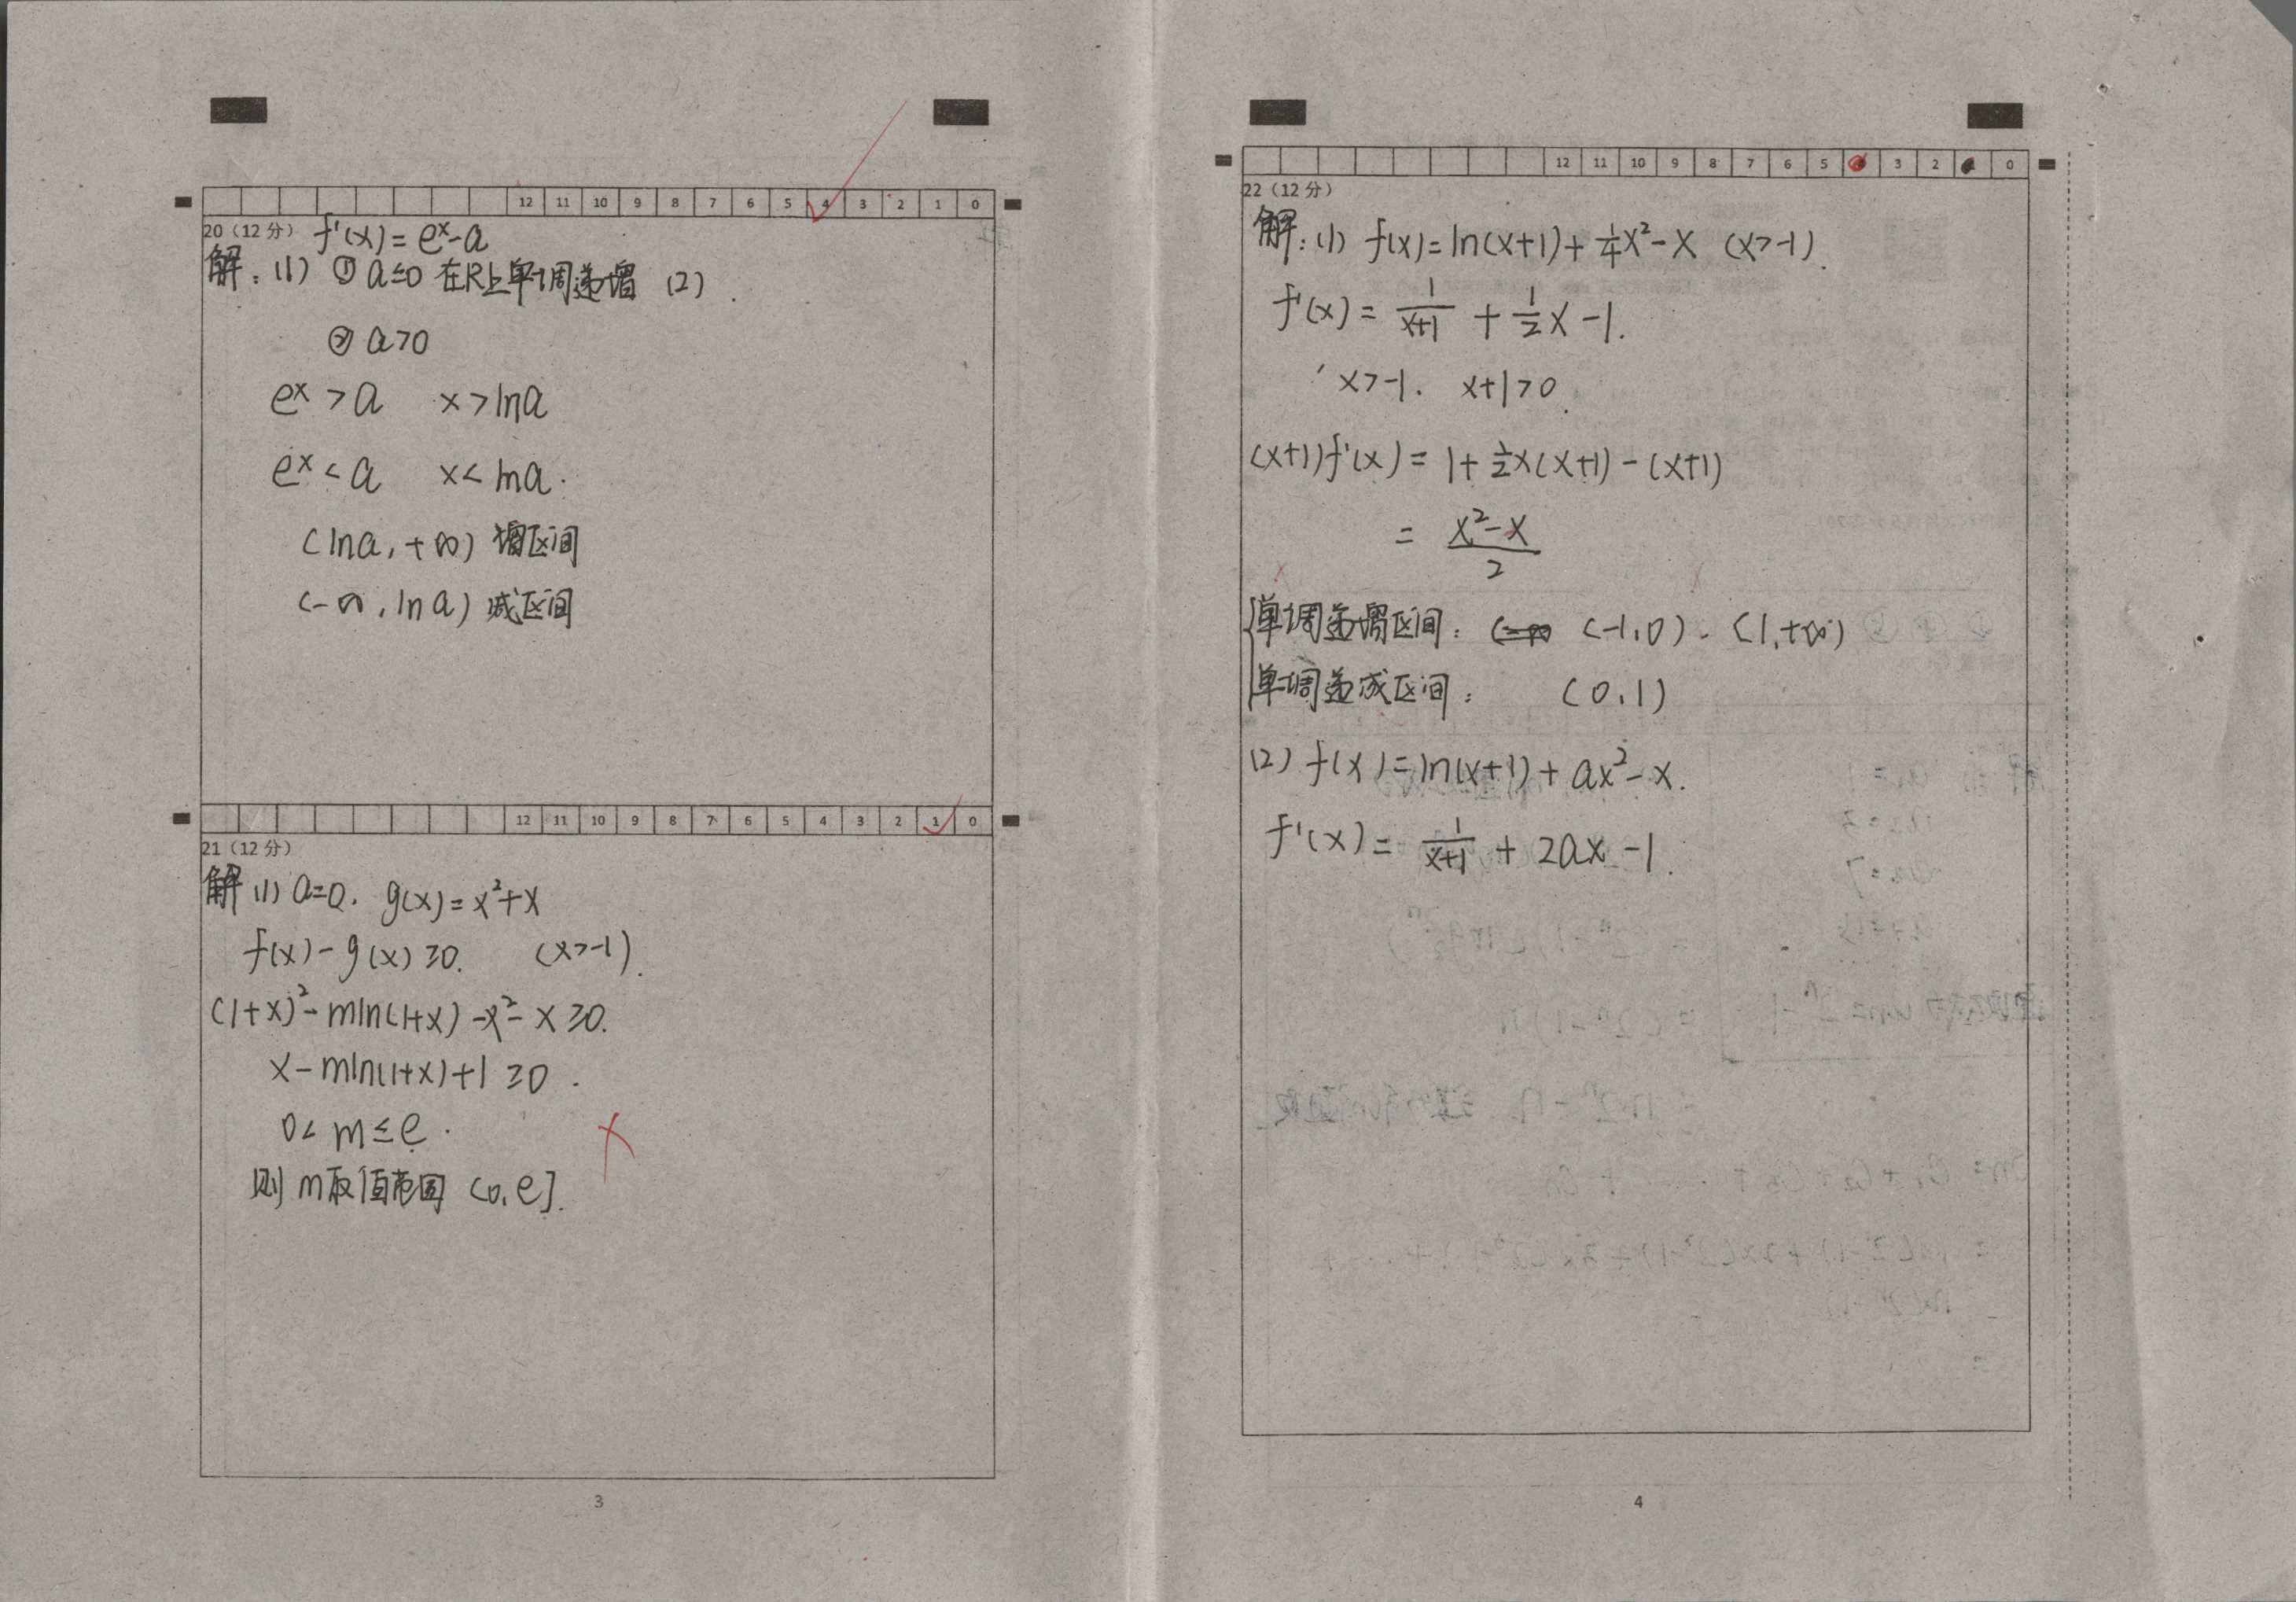 12 11 10 9 8 7 6 5 4 3 2 1 0
20（12 分） f'(x)=eˣ-a
解：(1) ① a≤0 在R上单调递增 (2)
② a>0
eˣ>a x>lna
eˣ<a x<lna.
(lna,+∞) 增区间
(-∞,lna) 减区间
12 11 10 9 8 7 6 5 4 3 2 1 0
21（12 分）
解 (1) a=0. g(x)=x²+x
f(x)-g(x)≥0. (x>-1).
(1+x)²-mln(1+x)-x²-x≥0.
x-mln(1+x)+1≥0.
0<m≤e.
则m取值范围 (0,e].
3
12 11 10 9 8 7 6 5 3 2 0
22（12 分）
解：(1) f(x)=ln(x+1)+¼x²-x (x>-1).
f'(x)=1/(x+1)+½x-1.
x>-1. x+1>0.
(x+1)f'(x)=1+½x(x+1)-(x+1)
=(x²-x)/2
单调递增区间： (-1,0)、(1,+∞)
单调递减区间： (0,1)
(2) f(x)=ln(x+1)+ax²-x.
f'(x)=1/(x+1)+2ax-1.
4